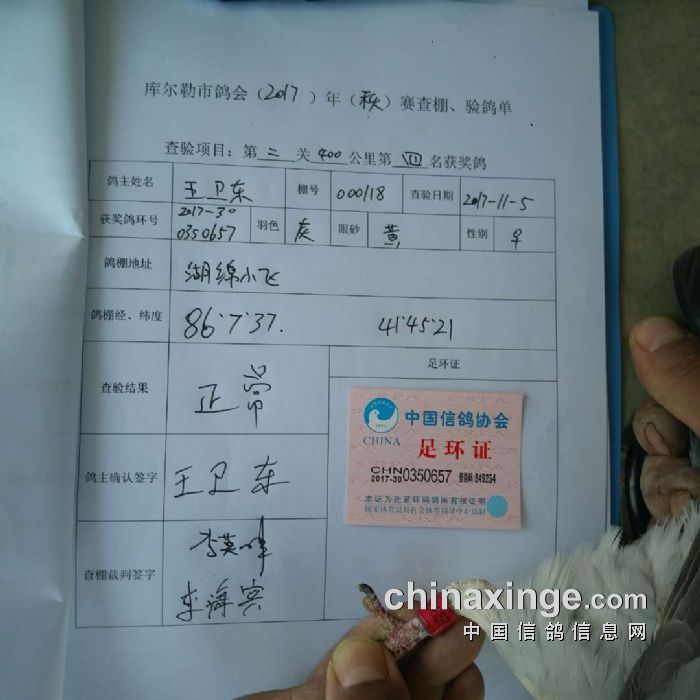 库尔勒市鸽会（2017）年（秋）赛查棚、验鸽单
查验项目：第 二 关 400 公里第 四 名获奖鸽
鸽主姓名 王卫东 棚号 000118 查验日期 2017-11-5
获奖鸽环号 2017-30 0350657 羽色 灰 眼砂 黄 性别 ♀
鸽棚地址 湖绵小飞
鸽棚经、纬度 86°7'37. 41°45'21
查验结果 正常 足环证
中国信鸽协会
CHINA 足环证
CHN 2017-30 0350657 查验码:849234
本证为此足环信鸽所有权证明
国家体育总局社会体育指导中心监制
鸽主确认签字 王卫东
查棚裁判签字 李英
李海宾
chinaxinge.com
中国信鸽信息网